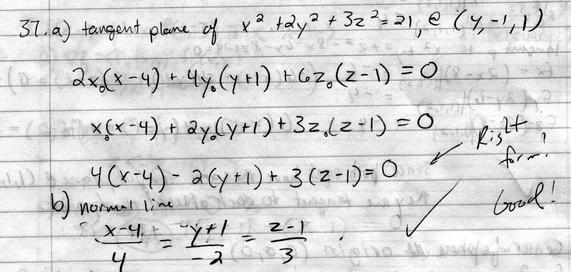 37. a) tangent plane of x² + 2y² + 3z² = 21, @ (4, -1, 1)
2x₀(x-4) + 4y₀(y+1) + 6z₀(z-1) = 0
x₀(x-4) + 2y₀(y+1) + 3z₀(z-1) = 0
Right form?
4(x-4) - 2(y+1) + 3(z-1) = 0
Good!
b) normal line
(x-4)/4 = (y+1)/-2 = (z-1)/3 .